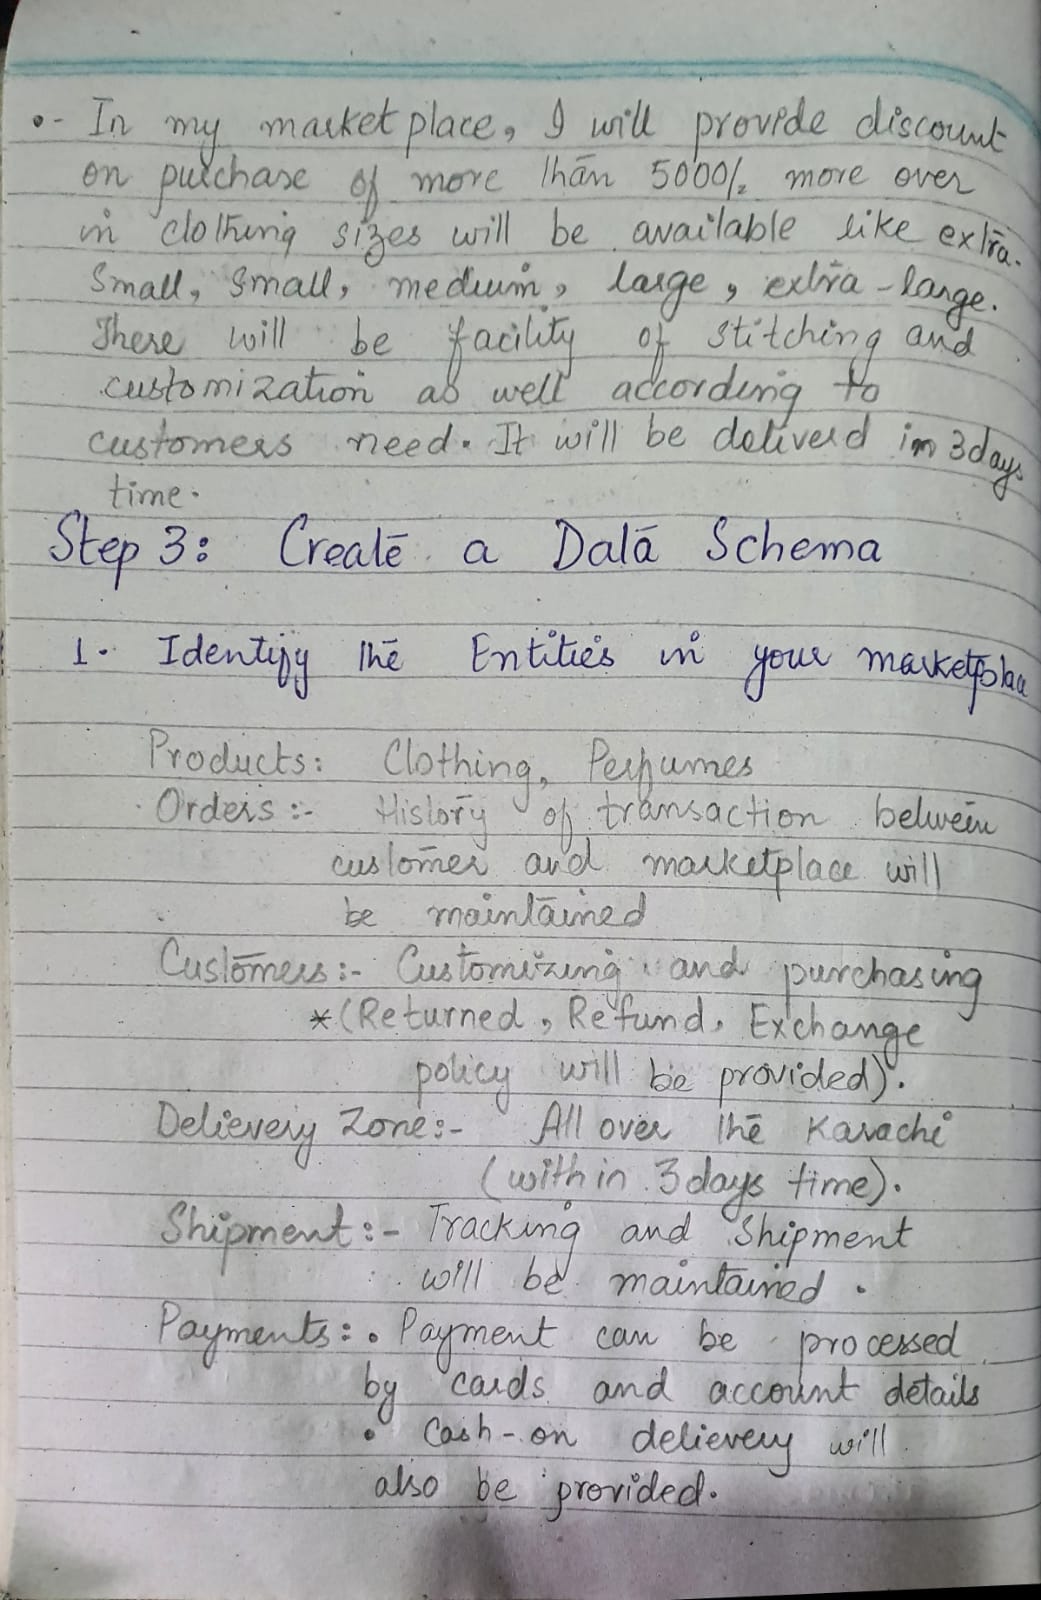 •- In my marketplace, I will provide discount
on purchase of more than 5000/= more over
in clothing sizes will be available like extra-
small, small, medium, large, extra-large.
There will be facility of stitching and
customization as well according to
customers need. It will be deliverd in 3days
time.
Step 3: Create a Data Schema
1. Identify the Entities in your marketplace
Products: Clothing, Perfumes
Orders :- History of transaction between
customer and marketplace will
be maintained
Customers:- Customizing and purchasing
*(Returned, Refund, Exchange
policy will be provided).
Delievery Zone:- All over the Karachi
(within 3days time).
Shipment:- Tracking and Shipment
will be maintained.
Payments: • Payment can be processed
by cards and account details
• Cash-on delievery will
also be provided.